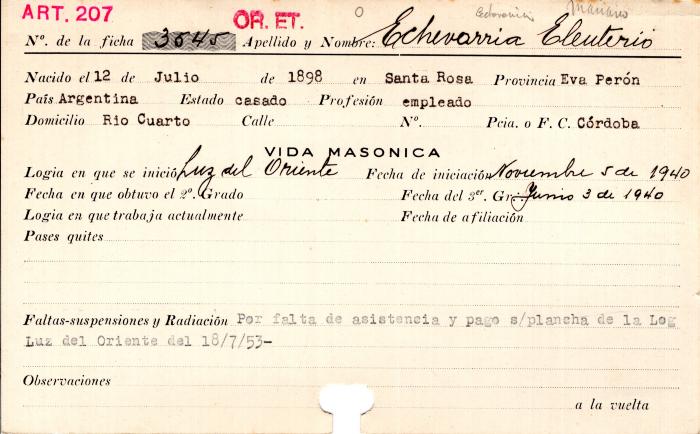 ART. 207 OR. ET. O Mariano
Nº. de la ficha 3545 Apellido y Nombre: Echevarria Eleuterio
Nacido el 12 de Julio de 1898 en Santa Rosa Provincia Eva Perón
País Argentina Estado casado Profesión empleado
Domicilio Rio Cuarto Calle Nº. Pcia. o F. C. Córdoba
VIDA MASONICA
Logia en que se inició Luz del Oriente Fecha de iniciación Noviembre 5 de 1940
Fecha en que obtuvo el 2º. Grado Fecha del 3er. Gr. Junio 3 de 1940
Logia en que trabaja actualmente Fecha de afiliación
Pases quites
Faltas-suspensiones y Radiación Por falta de asistencia y pago s/plancha de la Log
Luz del Oriente del 18/7/53-
Observaciones
a la vuelta